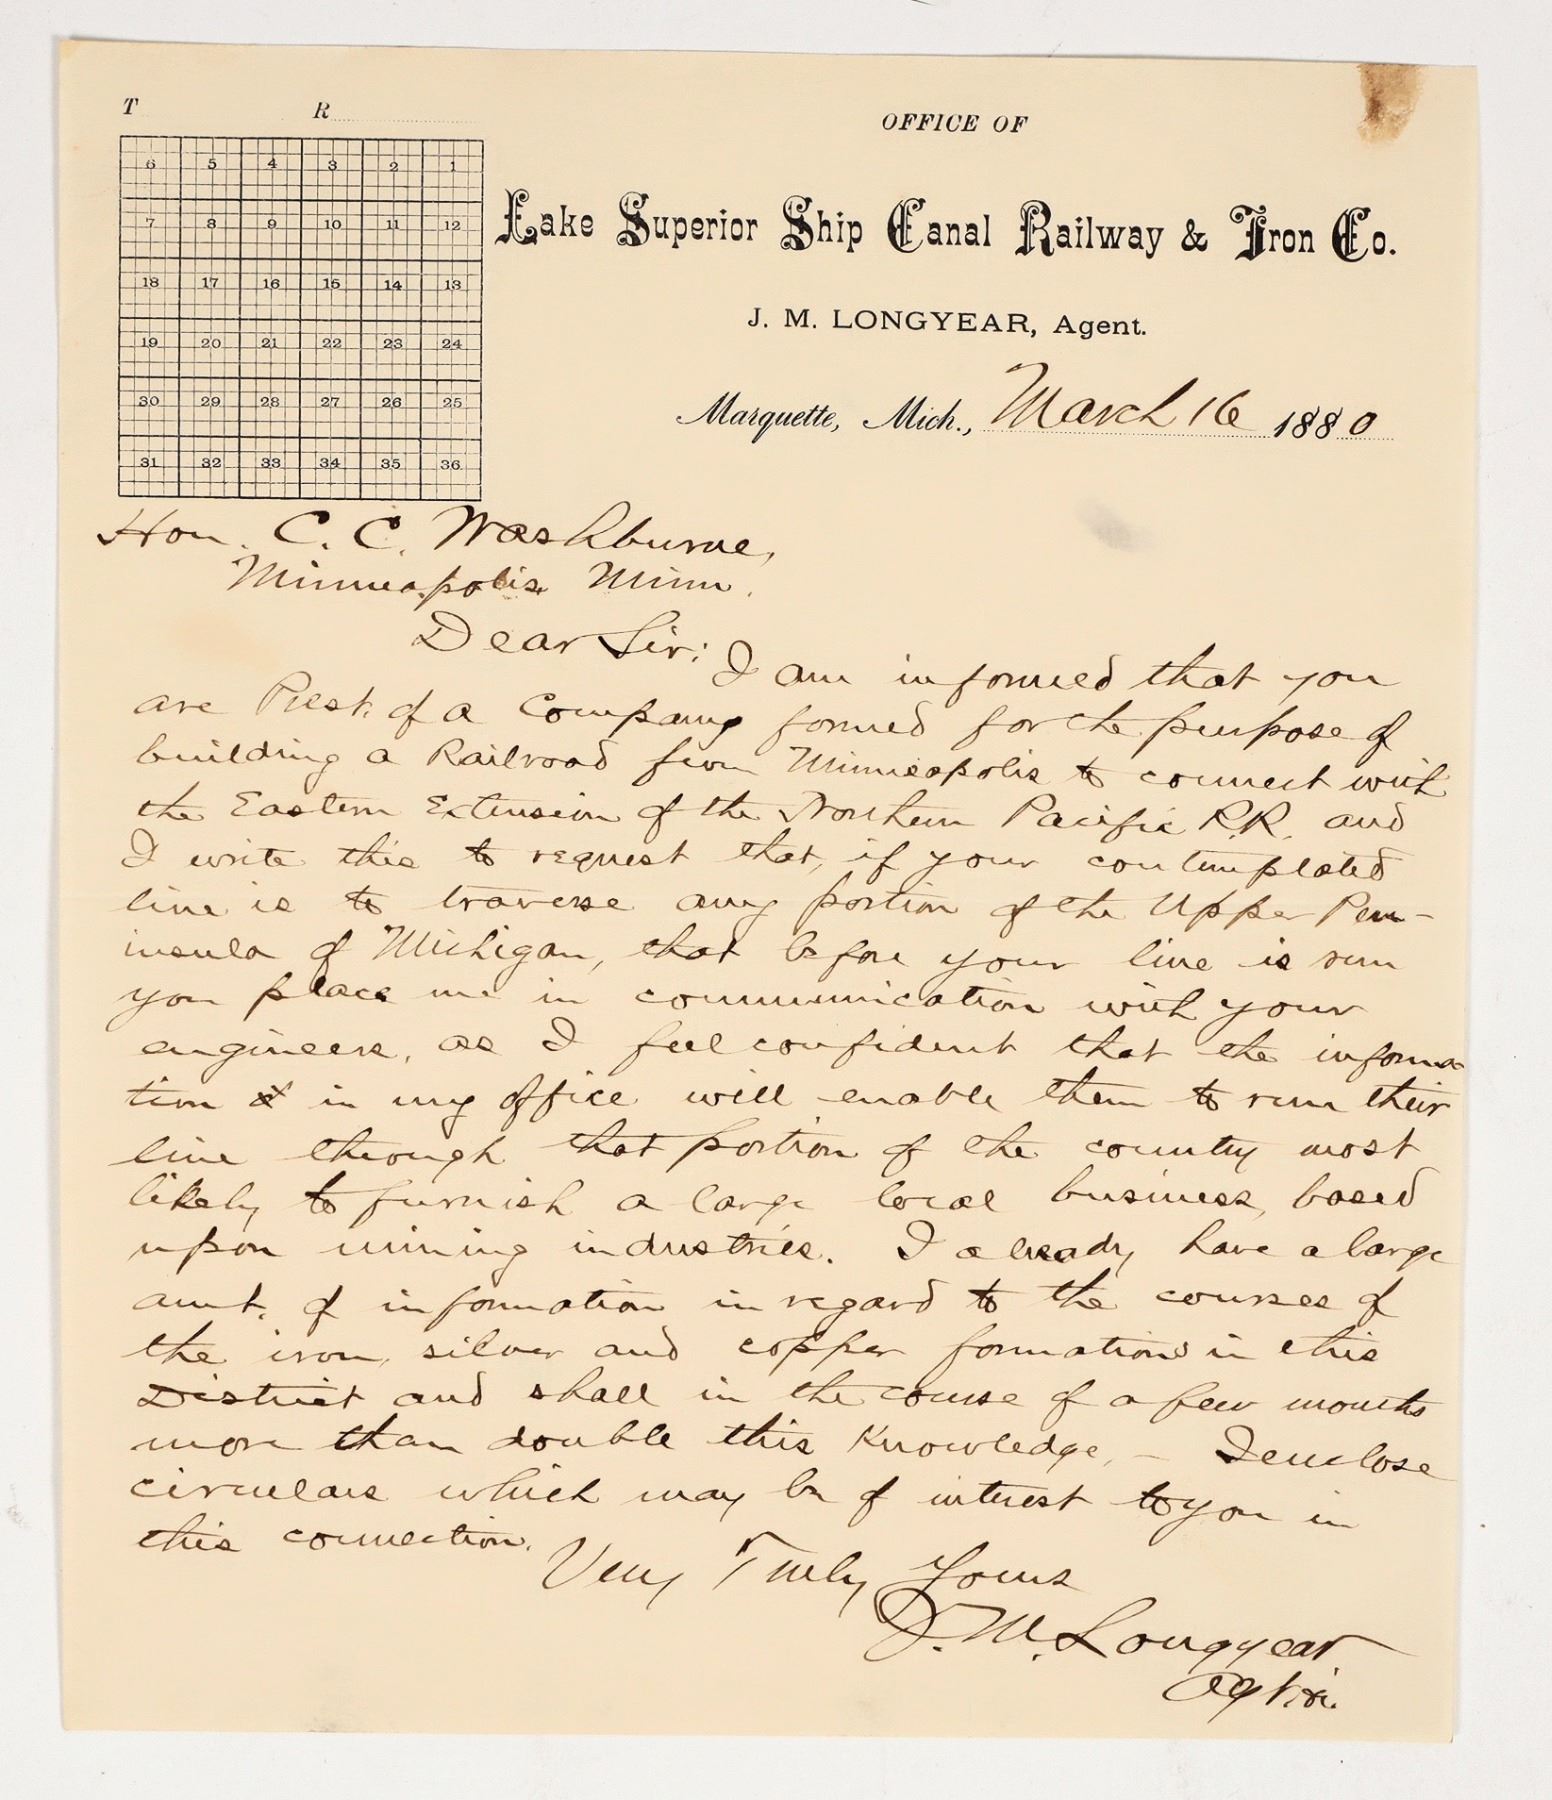 T R
OFFICE OF
6 5 4 3 2 1
7 8 9 10 11 12
18 17 16 15 14 13
19 20 21 22 23 24
30 29 28 27 26 25
31 32 33 34 35 36
Lake Superior Ship Canal Railway & Iron Co.
J. M. LONGYEAR, Agent.
Marquette, Mich., March 16 1880
Hon. C. C. Washburne,
Minneapolis Minn.
Dear Sir: I am informed that you
are Prest. of a Company formed for the purpose of
building a Railroad from Minneapolis to connect with
the Eastern Extension of the Northern Pacific R.R. and
I write this to request that, if your contemplated
line is to traverse any portion of the Upper Pen-
insula of Michigan, that before your line is run
you place me in communication with your
engineers, as I feel confident that the informa-
tion in my office will enable them to run their
line through that portion of the country most
likely to furnish a large local business, based
upon mining industries. I already have a large
amt. of information in regard to the courses of
the iron, silver and copper formations in this
District and shall in the course of a few months
more than double this knowledge, — I enclose
circulars which may be of interest to you in
this connection.
Very Truly Yours
J. M. Longyear